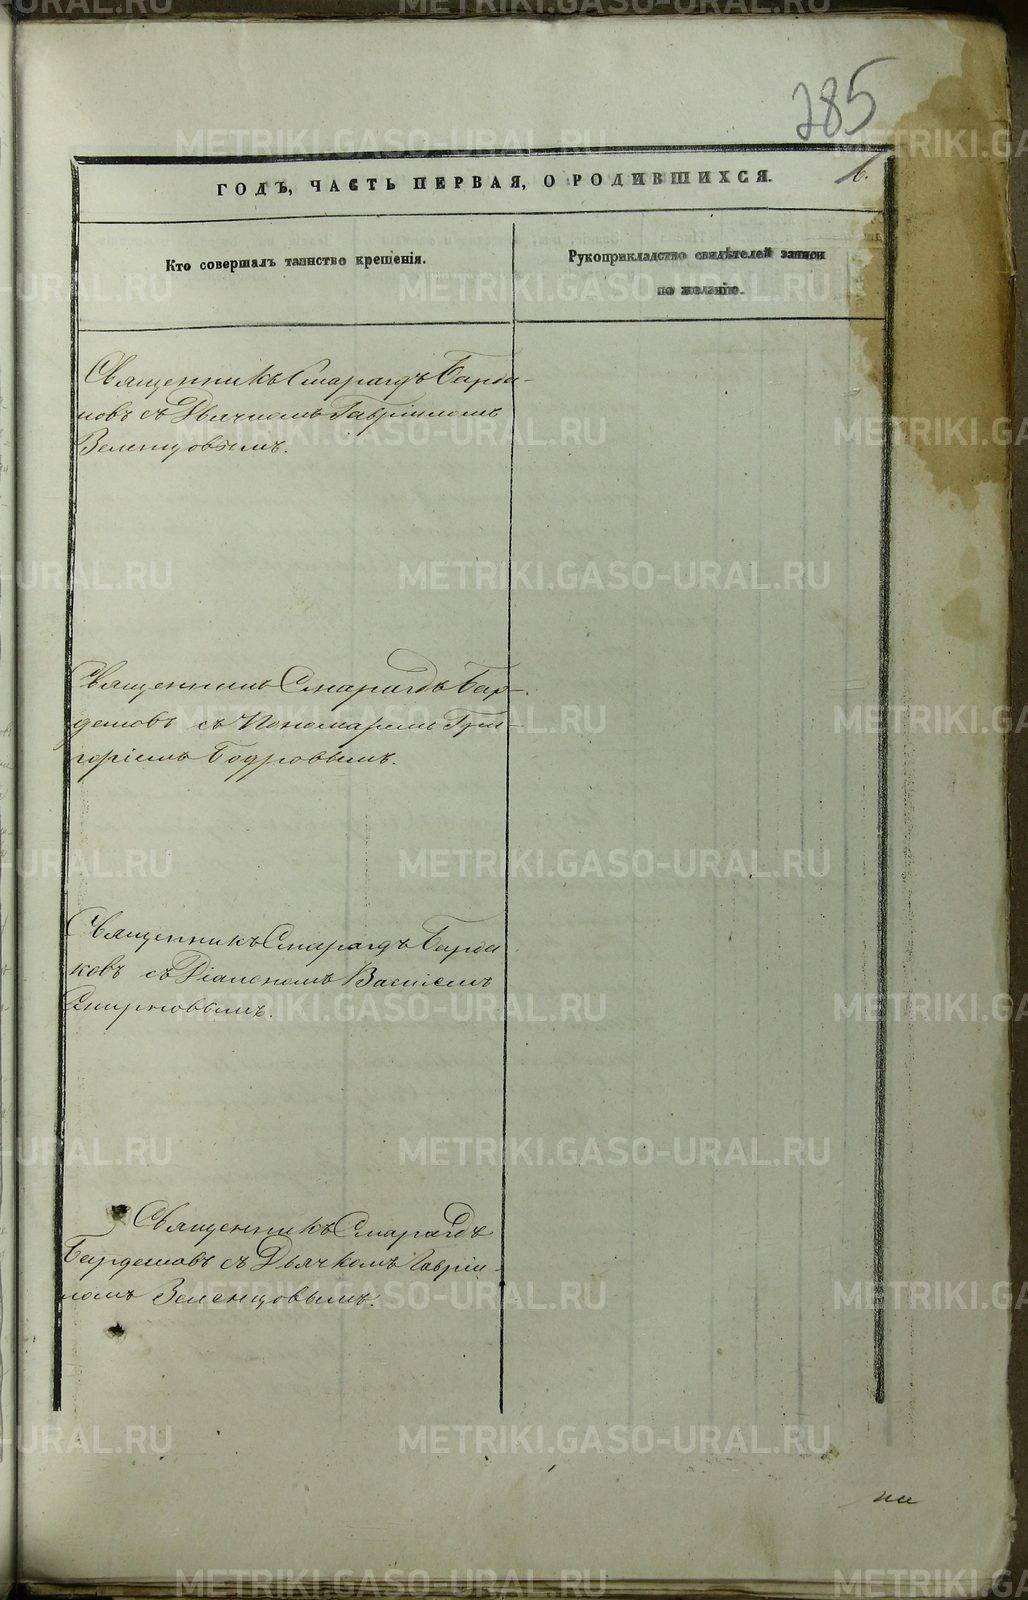 285
6.
ГОДЪ, ЧАСТЬ ПЕРВАЯ, О РОДИВШИХСЯ.
Кто совершалъ таинство крещенія.
Рукоприкладство свидѣтелей записи
по желанію.
Священникъ Смарагдъ
съ Дьячкомъ Гавріиломъ
Зеленцовымъ.
Священникъ Смарагдъ
съ Пономаремъ Гри-
горіемъ Бодровымъ.
Священникъ Смарагдъ
съ Діакономъ
Смирновымъ.
Священникъ Смарагдъ
съ Дьячкомъ Гавріи-
ломъ Зеленцовымъ.
METRIKI.GASO-URAL.RU